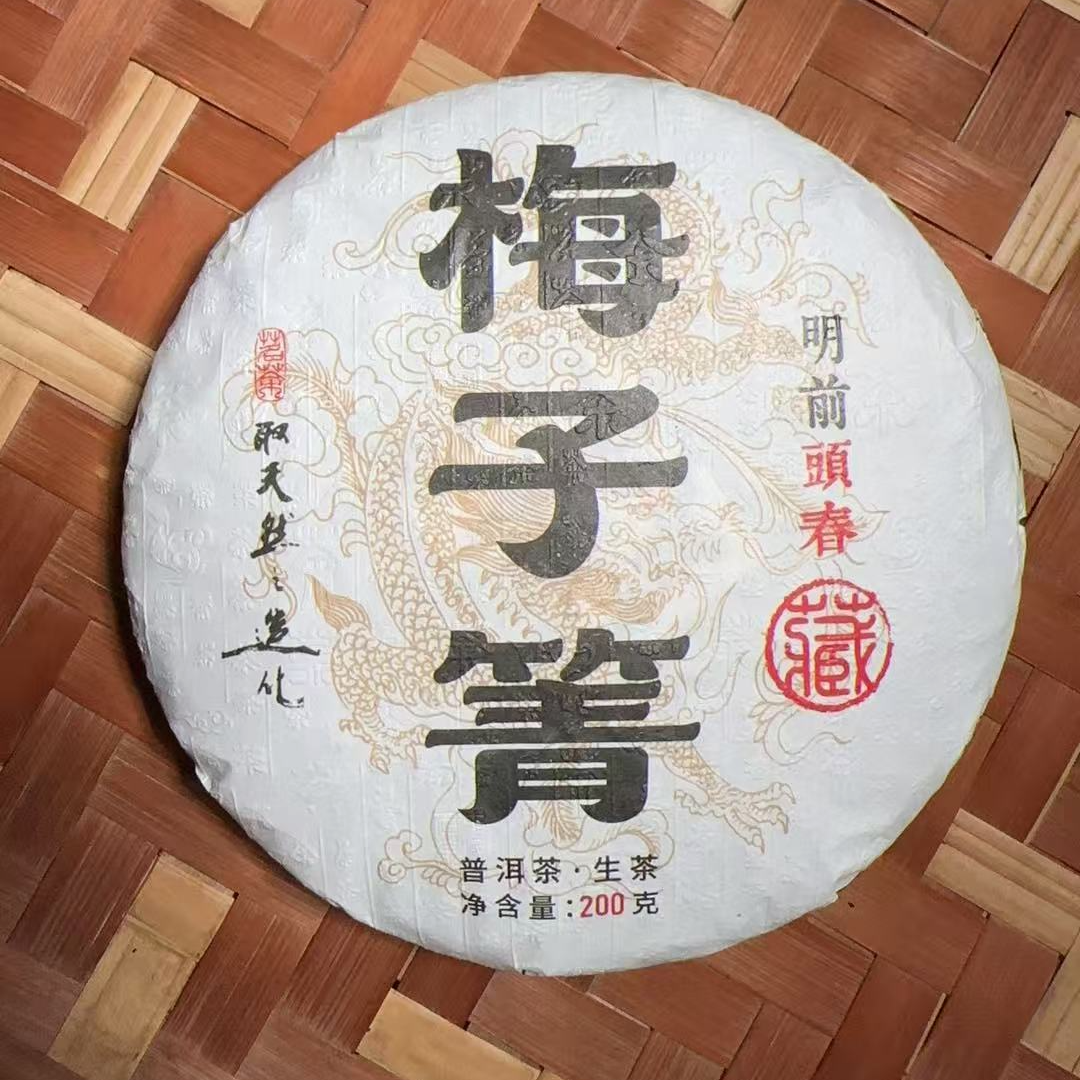 梅子箐
明前頭春
藏
茗茶
取天然之造化
普洱茶·生茶
净含量:200克